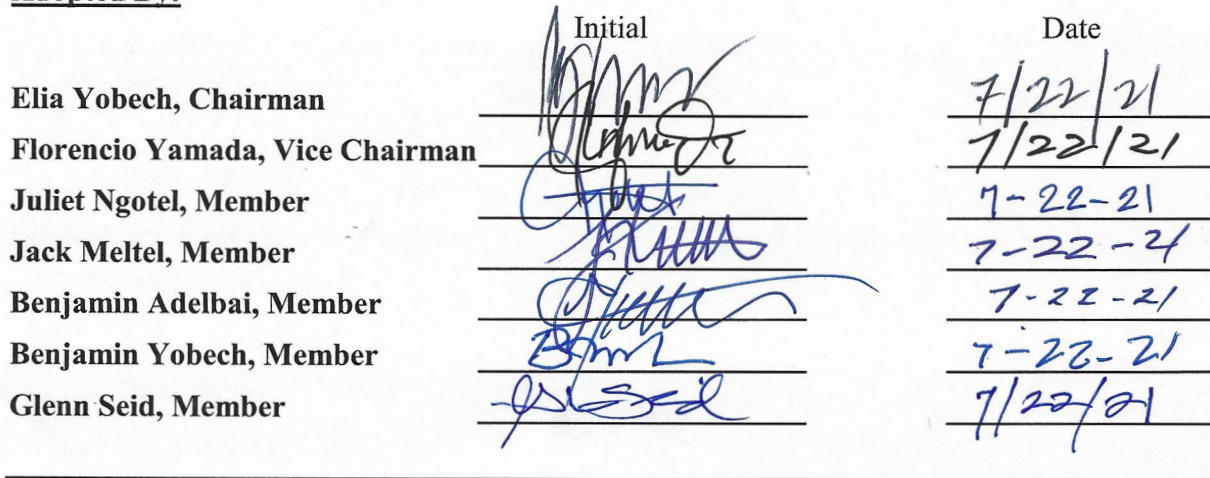 Initial Date
Elia Yobech, Chairman 7/22/21
Florencio Yamada, Vice Chairman 7/22/21
Juliet Ngotel, Member 7-22-21
Jack Meltel, Member 7-22-21
Benjamin Adelbai, Member 7-22-21
Benjamin Yobech, Member 7-22-21
Glenn Seid, Member 7/22/21